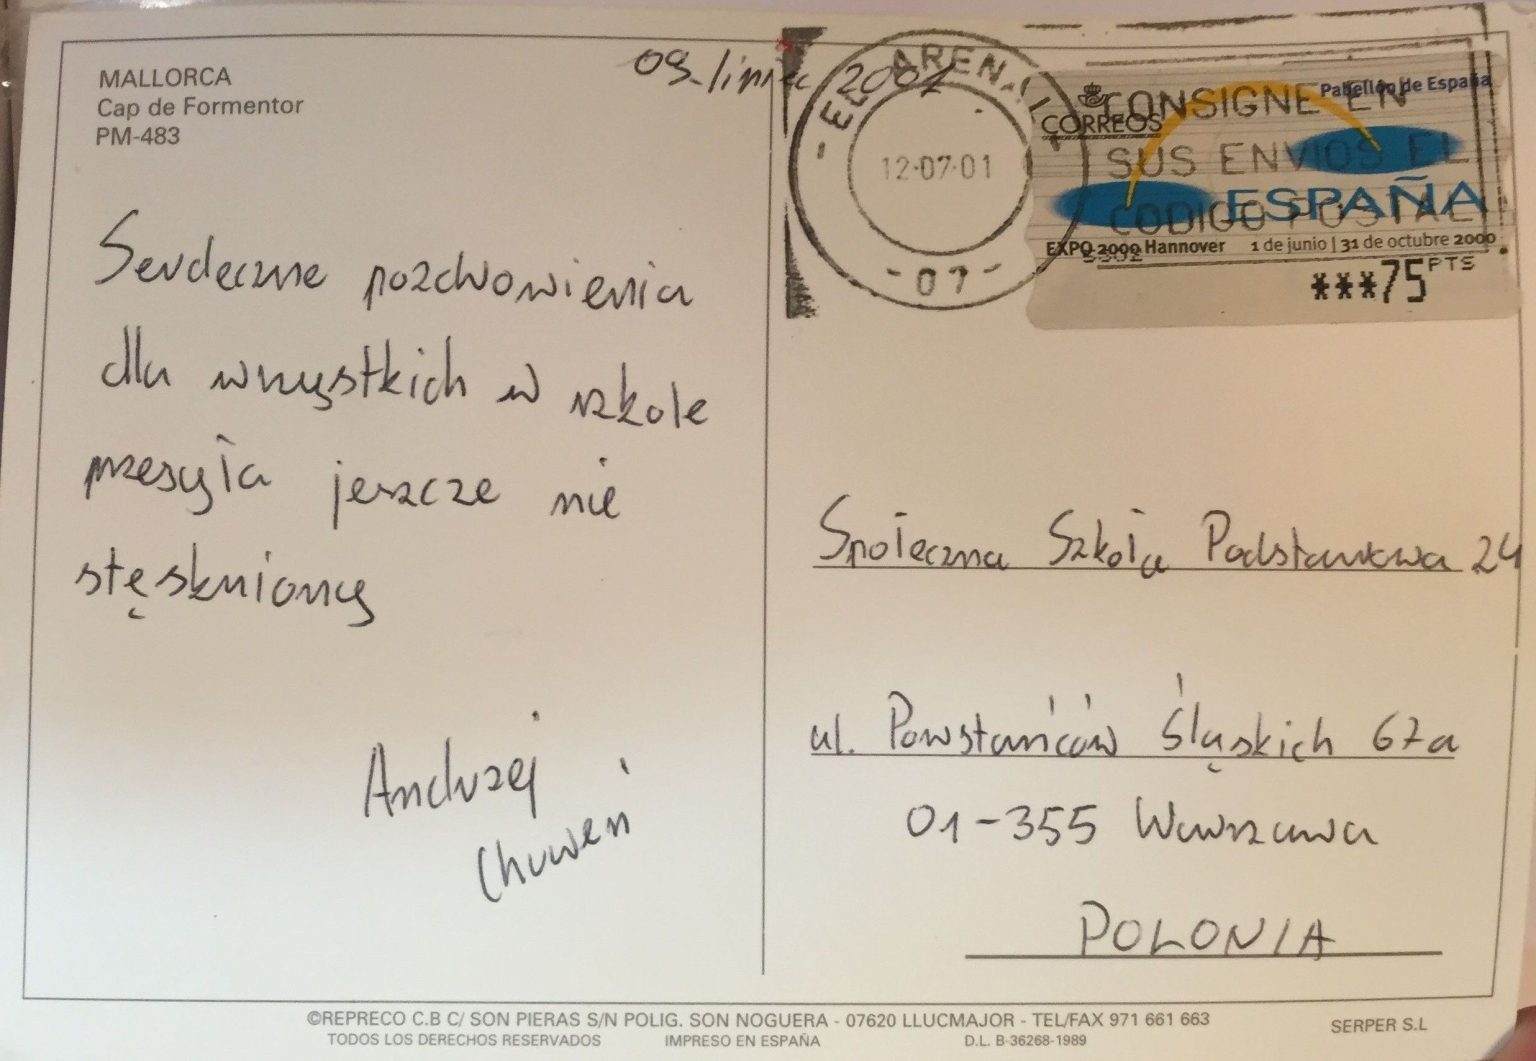 MALLORCA
Cap de Formentor
PM-483
09 lipiec 2001
EL ARENAL
12-07-01
- 07 -
CONSIGNE EN
SUS ENVIOS EL
CODIGO POSTAL
CORREOS
Pabellón de España
ESPAÑA
EXPO 2000 Hannover 1 de junio | 31 de octubre 2000
***75 PTS
Serdeczne pozdrowienia
dla wszystkich w szkole
przesyła jeszcze nie
stęskniony
Andrzej
Społeczna Szkoła Podstawowa 24
ul. Powstańców Śląskich 67a
01-355 Warszawa
POLONIA
©REPRECO C.B C/ SON PIERAS S/N POLIG. SON NOGUERA - 07620 LLUCMAJOR - TEL/FAX 971 661 663
TODOS LOS DERECHOS RESERVADOS IMPRESO EN ESPAÑA D.L. B-36268-1989
SERPER S.L